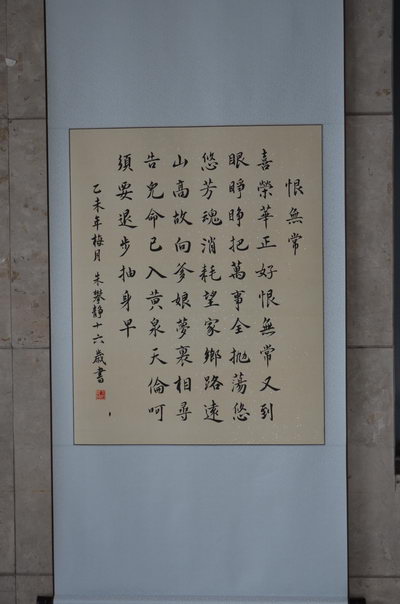 恨無常
喜榮華正好恨無常又到
眼睜睜把萬事全抛蕩悠
悠芳魂消耗望家鄉路遠
山高故向爹娘夢裏相尋
告兒命已入黄泉天倫呵
須要退步抽身早
乙未年梅月 朱攀靜十六歲書